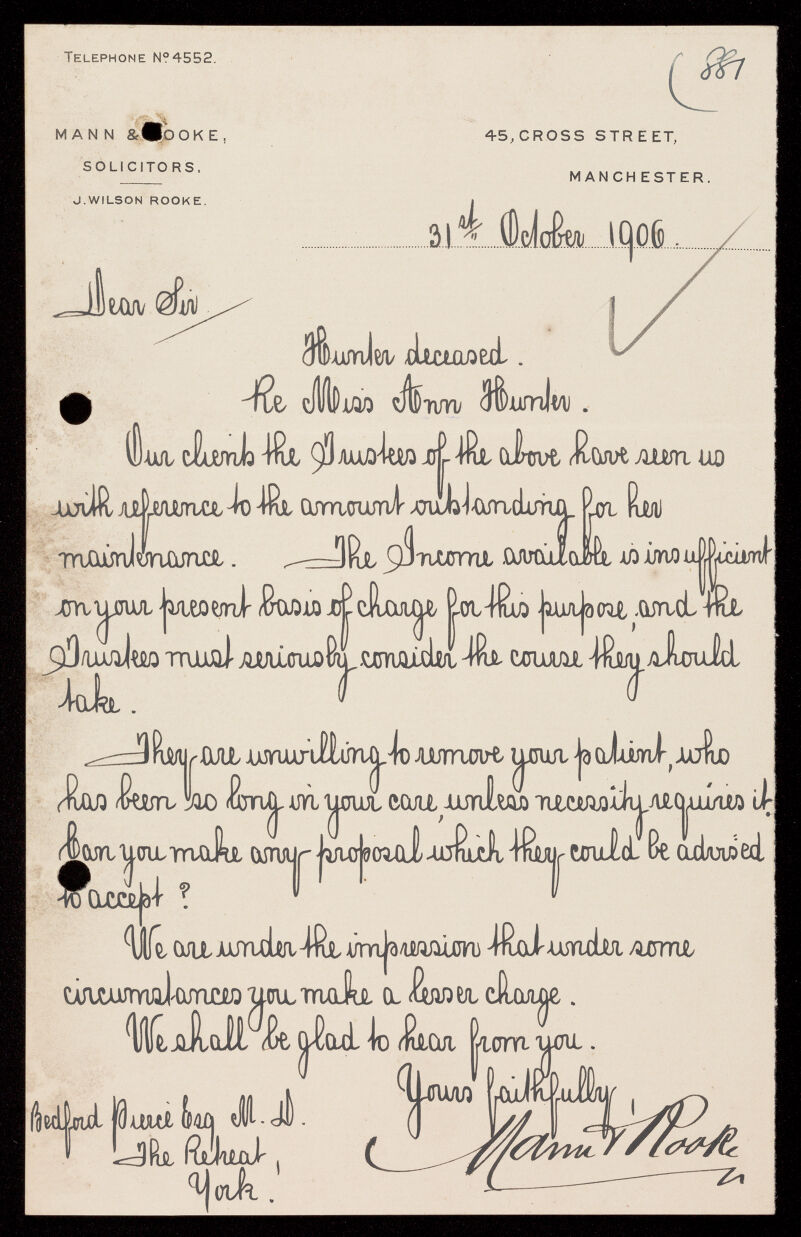 TELEPHONE Nº 4552.
(881
MANN & ROOKE,
SOLICITORS,
J. WILSON ROOKE.
45, CROSS STREET,
MANCHESTER.
31st October 1906.
Dear Sir
Hunter deceased.
Re Miss Ann Hunter.
Our clients the Trustees of the above have seen us
with reference to the amount outstanding for her
maintenance. The Income available is insufficient
on your present basis of charge for this purpose, and the
Trustees must seriously consider the course they should
take.
They are unwilling to remove your patient, who
has been so long in your care, unless necessity requires it.
Can you make any proposal which they could be advised
to accept?
We are under the impression that under some
circumstances you make a lesser charge.
We shall be glad to hear from you.
Yours faithfully,
Mann & Rooke
Bedford Pierce Esq M.D.
The Retreat,
York.